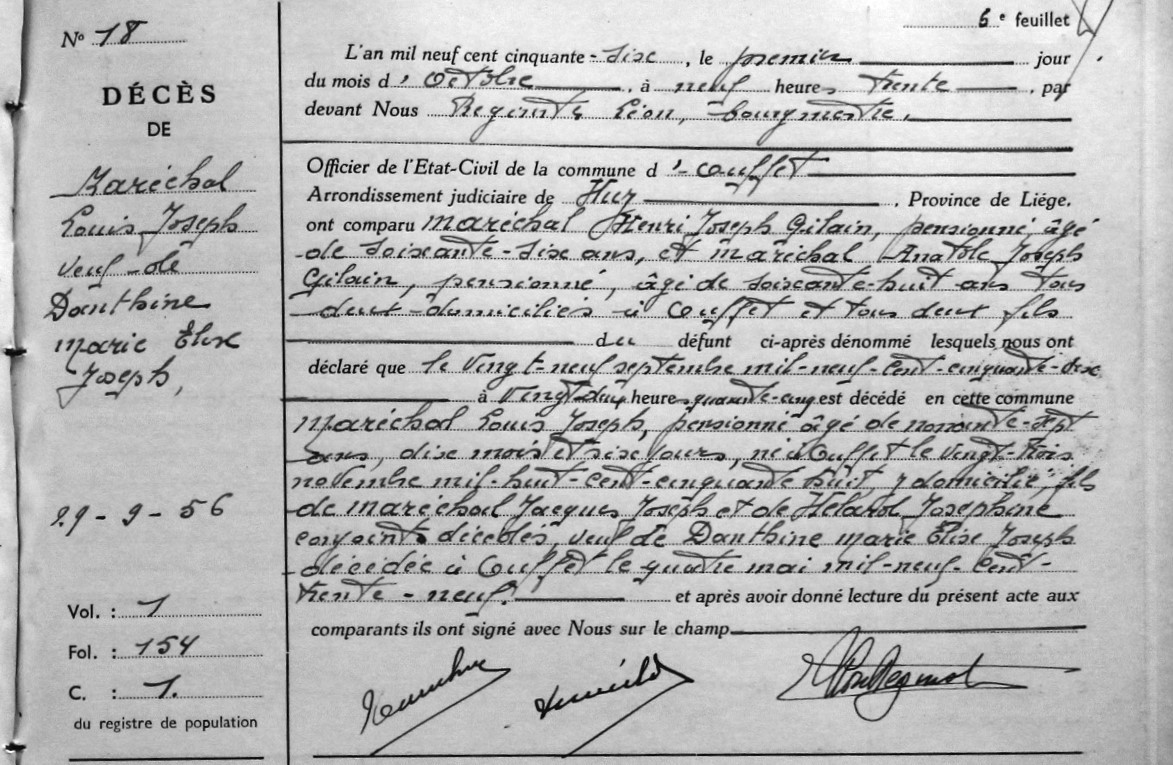 N° 18
DÉCÈS
DE
Maréchal
Louis Joseph
veuf de
Danthine
Marie Elise
Joseph,
29 - 9 - 56
Vol. : 1
Fol. : 154
C. : 1.
du registre de population
6e feuillet
L'an mil neuf cent cinquante-six, le premier jour
du mois d'octobre, à neuf heures trente, par
devant Nous Léon, bourgmestre,
Officier de l'Etat-Civil de la commune d'Ouffet
Arrondissement judiciaire de Huy, Province de Liége,
ont comparu Maréchal Henri Joseph Gilain, pensionné, âgé
de soixante-six ans, et Maréchal Anatole Joseph
Gilain, pensionné, âgé de soixante-huit ans tous
deux domiciliés à Ouffet et tous deux fils
du défunt ci-après dénommé lesquels nous ont
déclaré que le vingt-neuf septembre mil-neuf-cent-cinquante-six
à vingt-deux heures quarante-cinq est décédé en cette commune
Maréchal Louis Joseph, pensionné âgé de nonante-sept
ans, dix mois et six jours, né à Ouffet le vingt-trois
novembre mil-huit-cent-cinquante huit y domicilié, fils
de Maréchal Jacques Joseph et de Joséphine
conjoints décédés, veuf de Danthine Marie Elise Joseph
décédée à Ouffet le quatre mai mil-neuf-cent-
trente-neuf. et après avoir donné lecture du présent acte aux
comparants ils ont signé avec Nous sur le champ